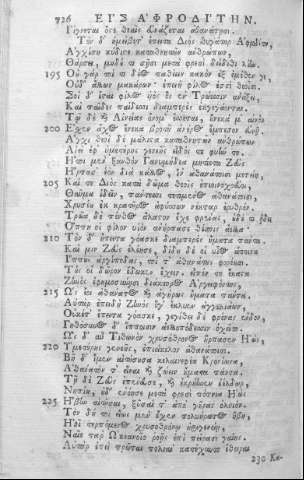 726 ΕΙΣ ἈΦΡΟΔΙΤΗΝ.
Γίγνεται ὅς τε θεαῖς εὐνάζεται ἀθανάτῃσι.
Τὸν δ' ἠμείβετ' ἔπειτα Διὸς θυγάτηρ Ἀφροδίτη,
Ἀγχίση κύδιστε καταθνητῶν ἀνθρώπων,
Θάρσει, μηδέ τι σῇσι μετὰ φρεσὶ δείδιθι λίην.
195 Οὐ γάρ τοί τι δέος παθέειν κακὸν ἐξ ἐμέθεν γε,
Οὐδ' ἄλλων μακάρων· ἐπειὴ φίλος ἐσσὶ θεοῖσι.
Σοὶ δ' ἔσται φίλος υἱὸς ὃς ἐν Τρώεσσιν ἀνάξει,
Καὶ παῖδες παίδεσσι διαμπερὲς ἐκγεγάονται.
Τῷ δὲ καὶ Αἰνείας ὄνομ' ἔσσεται, οὕνεκά μ' αἰνὸν
200 Ἔσχεν ἄχος ἕνεκα βροτοῦ ἀνέρος ἔμπεσον εὐνῇ.
Ἀγχίθεοι δὲ μάλιστα καταθνητῶν ἀνθρώπων
Αἰεὶ ἀφ' ὑμετέρης γενεῆς εἶδός τε φυήν τε.
Ἤτοι μὲν ξανθὸν Γανυμήδεα μητίετα Ζεὺς
Ἥρπασ' ἑὸν διὰ κάλλος, ἵν' ἀθανάτοισι μετείη,
205 Καί τε Διὸς κατὰ δῶμα θεοῖς ἐπιοινοχοεύοι,
Θαῦμα ἰδεῖν, πάντεσσι τετιμένος ἀθανάτοισι,
Χρυσέου ἐκ κρατῆρος ἀφύσσων νέκταρ ἐρυθρόν.
Τρῶα δὲ πένθος ἄλαστον ἔχε φρένας, οὐδέ τι ᾔδει
Ὅππη οἱ φίλον υἱὸν ἀνήρπασε θέσπις ἄελλα.
210 Τὸν δ' ἤπειτα γόασκε διαμπερὲς ἤματα πάντα.
Καί μιν Ζεὺς ἐλέησε, δίδου δέ οἱ υἷος ἄποινα
Ἵππους ἀρσίποδας, τοί τ' ἀθανάτους φορέουσι.
Τούς οἱ δῶρον ἔδωκεν ἔχειν· εἶπέν τε ἕκαστα
Ζηνὸς ἐφημοσύνῃσι διάκτορος Ἀργειφόντης,
215 Ὡς ἔοι ἀθάνατος καὶ ἀγήραος ἤματα πάντα.
Αὐτὰρ ἐπειδὴ Ζηνὸς ὅγ' ἔκλυεν ἀγγελιάων,
Οὐκέτ' ἔπειτα γόασκε, γεγήθει δὲ φρένας ἔνδον,
Γηθόσυνος δ' ἵπποισιν ἀελλοπόδεσσιν ὀχεῖτο.
Ὣς δ' αὖ Τιθωνὸν χρυσόθρονος ἥρπασεν Ἠὼς,
220 Ὑμετέρης γενεῆς, ἐπιείκελον ἀθανάτοισι.
Βῆ δ' ἴμεν αἰτήσουσα κελαινεφέα Κρονίωνα,
Ἀθάνατόν τ' εἶναι καὶ ζώειν ἤματα πάντα.
Τῇ δὲ Ζεὺς ἐπένευσε, καὶ ἐκρήηνεν ἐέλδωρ,
Νηπίη, οὐδ' ἐνόησε μετὰ φρεσὶ πότνια Ἠὼς
225 Ἥβην αἰτῆσαι, ξῦσαί τ' ἀπὸ γῆρας ὀλοιόν.
Τὸν δ' ἤτοι εἵως μὲν ἔχεν πολυήρατος ἥβη,
Ἠοῖ τερπόμενος χρυσοθρόνῳ ἠριγενείῃ,
Ναῖε παρ' Ὠκεανοῖο ῥοῇς ἐπὶ πείρασι γαίης.
Αὐτὰρ ἐπεὶ πρῶται πολιαὶ κατέχυντο ἔθειραι
230 Κα-